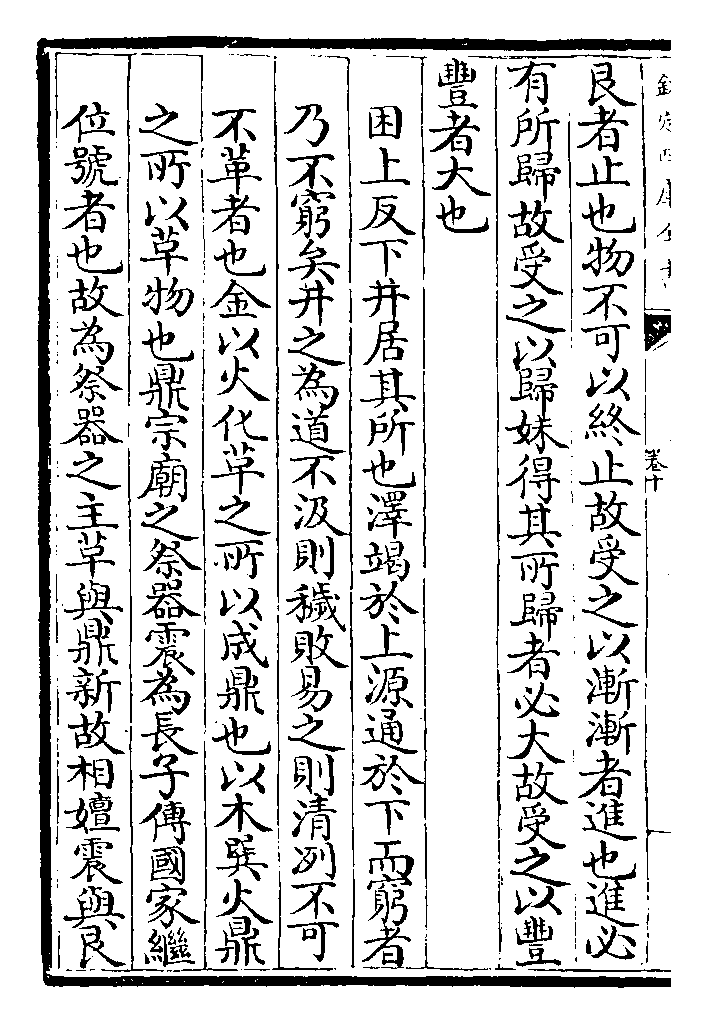 欽定四庫全書
卷十
艮者止也物不可以終止故受之以漸漸者進也進必
有所歸故受之以歸妹得其所歸者必大故受之以豐
豐者大也
困上反下井居其所也澤竭於上源通於下而窮者
乃不窮矣井之為道不汲則穢敗易之則清冽不可
不革者也金以火化革之所以成鼎也以木巽火鼎
之所以革物也鼎宗廟之祭器震為長子傳國家繼
位號者也故為祭器之主革與鼎新故相嬗震與艮